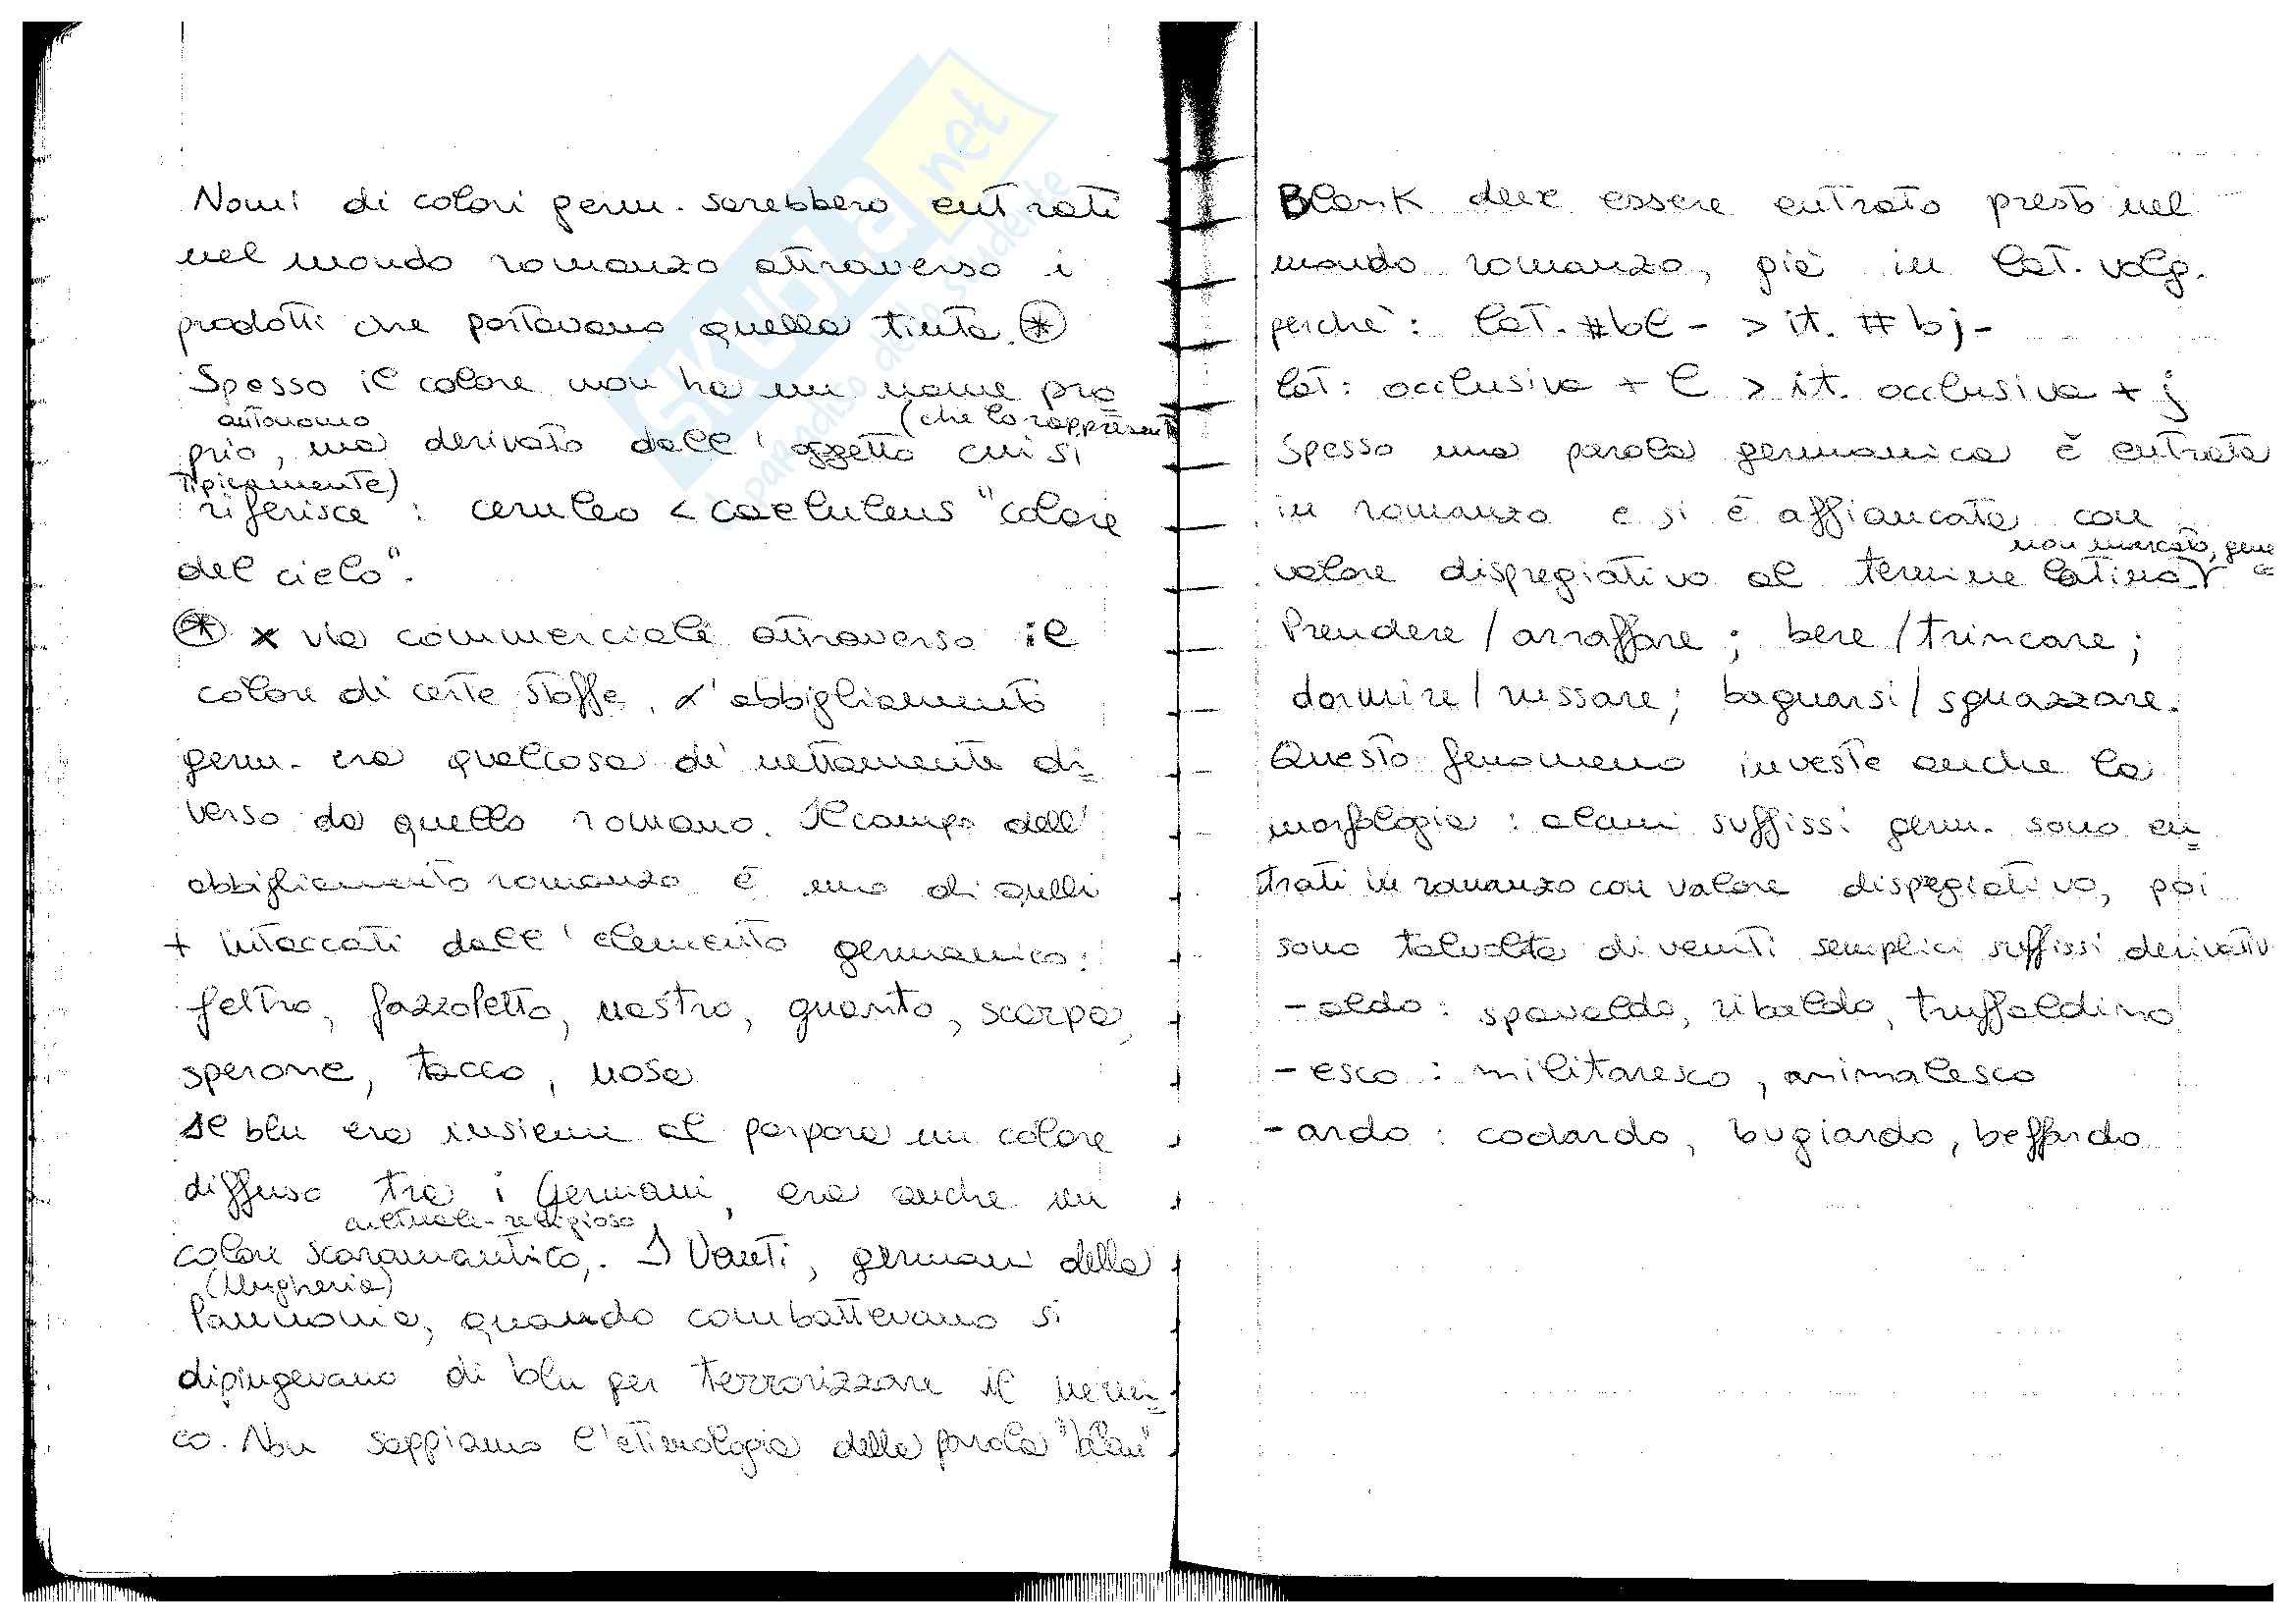 Nomi di colori germ. sarebbero entrati
nel mondo romanzo attraverso i
prodotti che portavano quella tinta. (*)
Spesso il colore non ha un nome pro=
autonomo (che lo rappresenta
prio, ma derivato dall'oggetto cui si
tipicamente)
riferisce : ceruleo < caeluleus "colore
del cielo".
(*) x via commerciale attraverso il
colore di certe stoffe. L'abbigliamento
germ. era qualcosa di nettamente di=
verso da quello romano. Il campo dell'
abbigliamento romanzo è uno di quelli
+ intaccati dall'elemento germanico:
feltro, fazzoletto, nastro, guanto, scarpa,
sperone, tacco, uosa
Il blu era insieme al porpora un colore
diffuso tra i Germani, era anche un
cultuale-religioso
colore scaramantico,. I Vanti, germani della
(Ungheria)
Pannonia, quando combattevano si
dipingevano di blu per terrorizzare il nemi=
co. Non sappiamo l'etimologia della parola "blau"
Blank deve essere entrato presto nel
mondo romanzo, già in lat. volg.
perchè : lat. #bl- > it. #bj-
lat: occlusiva + l > it. occlusiva + j
Spesso una parola germanica è entrata
in romanzo e si è affiancata con
non marcato, gene
valore dispregiativo al termine latino
Prendere / arraffare ; bere / trincare ;
dormire / russare ; bagnarsi / sguazzare.
Questo fenomeno investe anche la
morfologia : alcuni suffissi germ. sono en=
trati in romanzo con valore dispregiativo, poi
sono talvolta diventati semplici suffissi derivativ
-aldo : spavaldo, ribaldo, truffaldino
-esco : militaresco, animalesco
-ardo : codardo, bugiardo, beffardo
SKUOLA.net
il paradiso dello studente